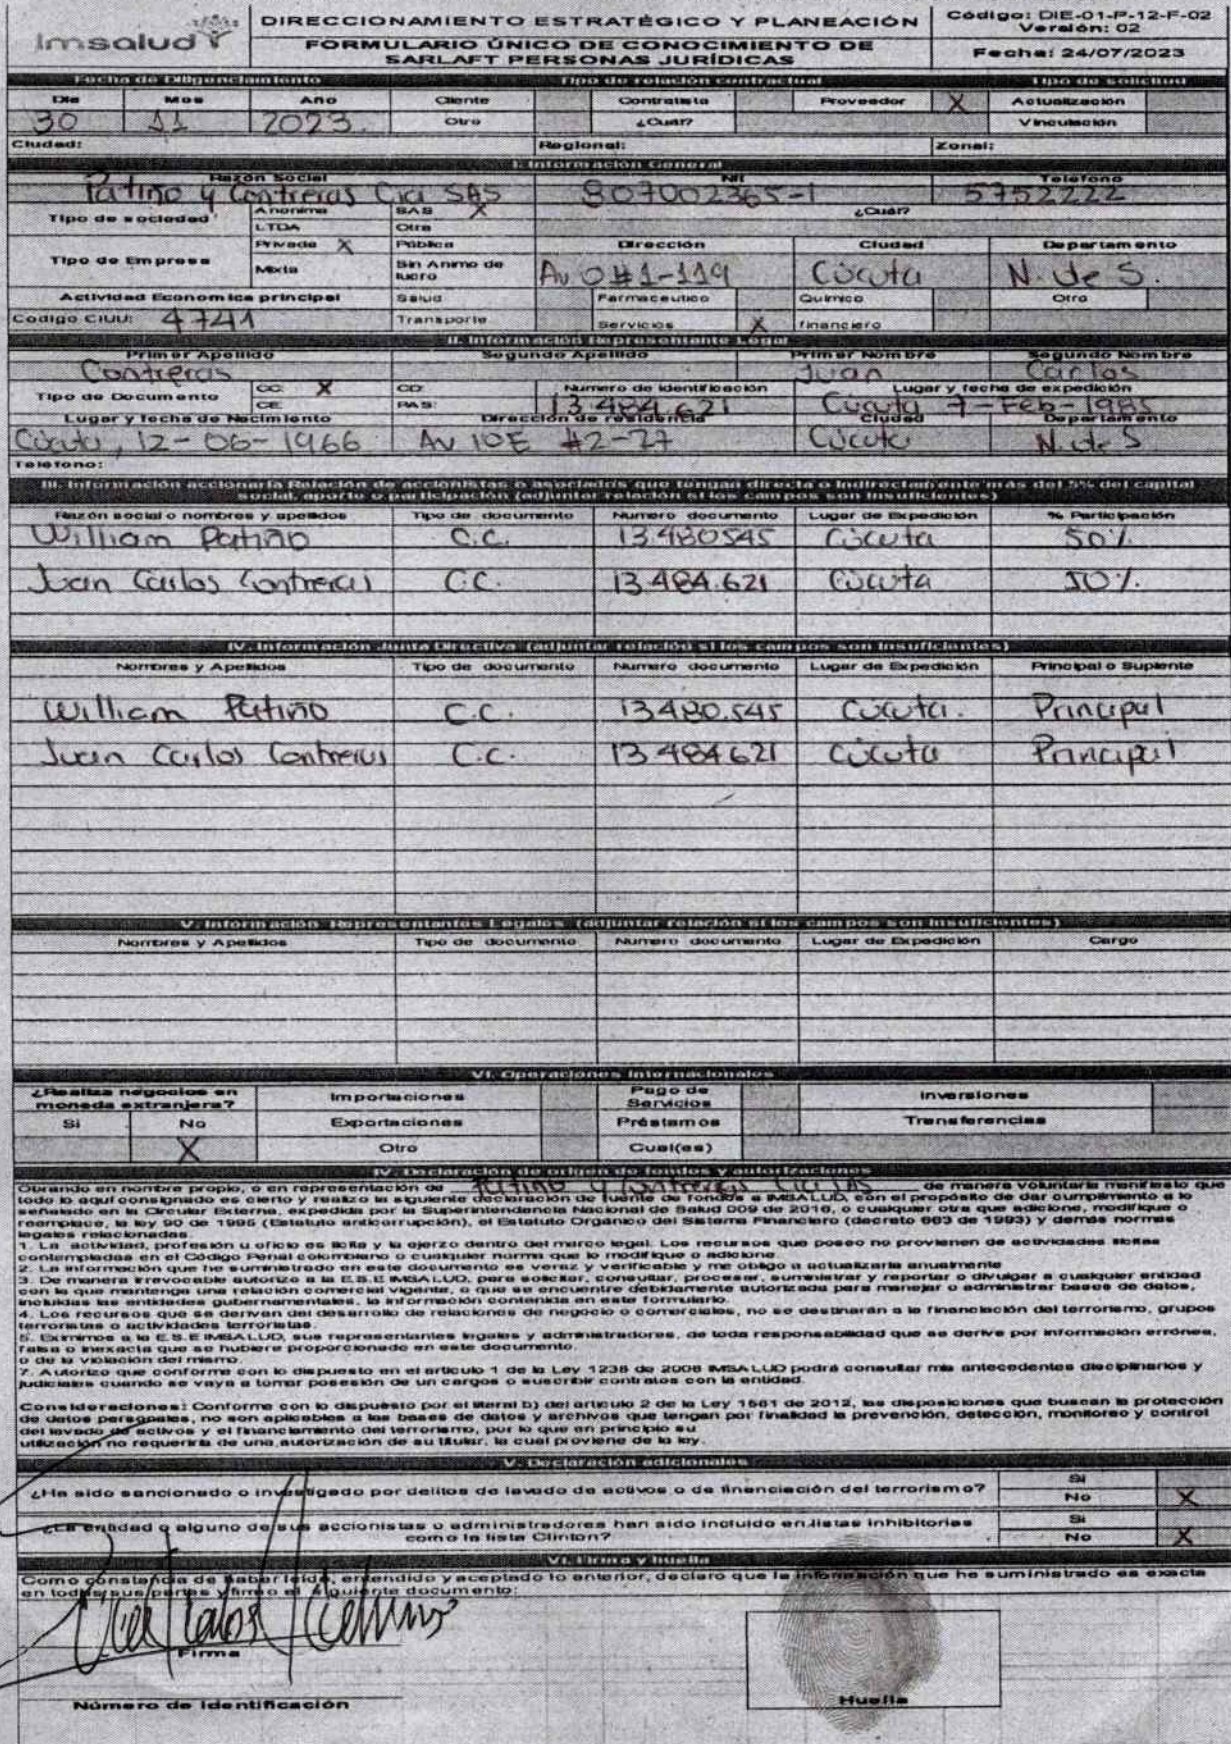 Imsalud
DIRECCIONAMIENTO ESTRATÉGICO Y PLANEACIÓN
FORMULARIO ÚNICO DE CONOCIMIENTO DE
SARLAFT PERSONAS JURÍDICAS
Código: DIE-01-P-12-F-02
Versión: 02
Fecha: 24/07/2023
Fecha de Diligenciamiento Tipo de relación contractual Tipo de solicitud
Día Mes Año Cliente Contratista Proveedor X Actualización
30 11 2023 Otro ¿Cuál? Vinculación
Ciudad: Regional: Zonal:
I. Información General
Razón Social Nit Telefono
Patiño y Contreras Cia SAS 807002365-1 5752222
Tipo de sociedad Anonima SAS X ¿Cuál?
LTDA Otra
Tipo de Empresa Privada X Pública Dirección Ciudad Departamento
Mixta Sin Animo de lucro Av 0 #1-119 Cúcuta N. de S.
Actividad Economica principal Salud Farmaceutico Quimico Otro
Codigo CIUU: 4741 Transporte Servicios X financiero
II. Información Representante Legal
Primer Apellido Segundo Apellido Primer Nombre Segundo Nombre
Contreras Juan Carlos
Tipo de Documento CC: X CD: Numero de identificación Lugar y fecha de expedición
CE: PAS: 13.484.621 Cúcuta 7-Feb-1985
Lugar y fecha de Nacimiento Dirección de residencia Ciudad Departamento
Cúcuta, 12-06-1966 Av 10E #2-27 Cúcuta N. de S
Telefono:
III. Información accionaria Relación de accionistas o asociados que tengan directa o indirectamente más del 5% del capital
social, aporte o participación (adjuntar relación si los campos son insuficientes)
Razón social o nombres y apellidos Tipo de documento Numero documento Lugar de Expedición % Participación
William Patiño C.C. 13.480545 Cúcuta 50%
Juan Carlos Contreras C.C. 13.484.621 Cúcuta 50%
IV. Información Junta Directiva (adjuntar relación si los campos son insuficientes)
Nombres y Apellidos Tipo de documento Numero documento Lugar de Expedición Principal o Suplente
William Patiño C.C. 13.480.545 Cúcuta. Principal
Juan Carlos Contreras C.C. 13.484621 Cúcuta Principal
V. Información Representantes Legales (adjuntar relación si los campos son insuficientes)
Nombres y Apellidos Tipo de documento Numero documento Lugar de Expedición Cargo
VI. Operaciones Internacionales
¿Realiza negocios en
moneda extranjera? Importaciones Pago de Servicios Inversiones
Si No Exportaciones Préstamos Transferencias
X Otro Cual(es)
IV. Declaración de origen de fondos y autorizaciones
Obrando en nombre propio, o en representación de Patiño y Contreras Cia SAS de manera voluntaria manifiesto que
todo lo aquí consignado es cierto y realizo la siguiente declaración de fuente de fondos a IMSALUD, con el propósito de dar cumplimiento a lo
señalado en la Circular Externa, expedida por la Superintendencia Nacional de Salud 009 de 2016, o cualquier otra que adicione, modifique o
reemplace, la ley 90 de 1995 (Estatuto anticorrupción), el Estatuto Orgánico del Sistema Financiero (decreto 663 de 1993) y demás normas
legales relacionadas.
1. La actividad, profesión u oficio es lícita y la ejerzo dentro del marco legal. Los recursos que poseo no provienen de actividades ilícitas
contempladas en el Código Penal colombiano o cualquier norma que lo modifique o adicione.
2. La información que he suministrado en este documento es veraz y verificable y me obligo a actualizarla anualmente
3. De manera irrevocable autorizo a la E.S.E IMSALUD, para solicitar, consultar, procesar, suministrar y reportar o divulgar a cualquier entidad
con la que mantenga una relación comercial vigente, o que se encuentre debidamente autorizada para manejar o administrar bases de datos,
incluidas las entidades gubernamentales, la información contenida en este formulario.
4. Los recursos que se derivan del desarrollo de relaciones de negocio o comerciales, no se destinarán a la financiación del terrorismo, grupos
terroristas o actividades terroristas.
5. Eximimos a la E.S.E IMSALUD, sus representantes legales y administradores, de toda responsabilidad que se derive por información errónea,
falsa o inexacta que se hubiere proporcionado en este documento,
o de la violación del mismo.
7. Autorizo que conforme con lo dispuesto en el artículo 1 de la Ley 1238 de 2008 IMSALUD podrá consultar mis antecedentes disciplinarios y
judiciales cuando se vaya a tomar posesión de un cargos o suscribir contratos con la entidad.
Consideraciones: Conforme con lo dispuesto por el literal b) del artículo 2 de la Ley 1581 de 2012, las disposiciones que buscan la protección
de datos personales, no son aplicables a las bases de datos y archivos que tengan por finalidad la prevención, detección, monitoreo y control
del lavado de activos y el financiamiento del terrorismo, por lo que en principio su
utilización no requeriría de una autorización de su titular, la cual proviene de la ley.
V. Declaración adicionales
¿Ha sido sancionado o investigado por delitos de lavado de activos o de financiación del terrorismo? Si
No X
¿La entidad o alguno de sus accionistas o administradores han sido incluido en listas inhibitorias
como la lista Clinton? Si
No X
VI. Firma y huella
Como constancia de haber leído, entendido y aceptado lo anterior, declaro que la información que he suministrado es exacta
en todas sus partes y firmo el siguiente documento:
Firma
Número de Identificación
Huella